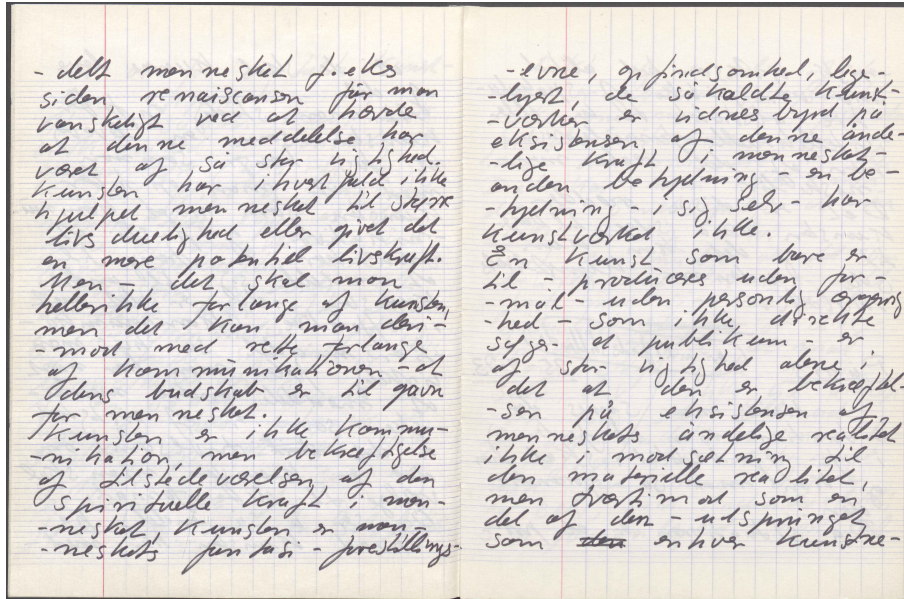 - delt mennesket f.eks
siden renaiscansen får man
vanskeligt ved at hævde
at denne meddelelse har
været af så stor vigtighed.
Kunsten har ihvert fald ikke
hjulpet mennesket til større
livsduelighed eller givet det
en mere potentiel livskraft.
Men - det skal man
hellerikke forlange af kunsten,
men det kan man deri-
-mod med rette forlange
af kommunikationen - at
dens budskab er til gavn
for mennesket.
Kunsten er ikke kommu-
-nikation, men bekræftigelse
af tilstedeværelsen af den
spirituelle kraft i men-
-nesket, kunsten er men-
-neskets fantasi - forestillings-
-evne, opfindsomhed, lige-
-hvert, de så kaldte kunst-
-værker er vidnesbyrd på
eksistensen af denne ånde-
-lige kraft i mennesket -
anden betydning - en be-
-tydning - i sig selv - har
kunstværket ikke.
En kunst som bare er
til - produceres uden for-
-mål - uden personlig
-hed - som ikke direkte
søger et publikum - er
af stor vigtighed alene i
det at den er bekræftel-
-sen på eksistensen af
menneskets åndelige realitet
ikke i modsætning til
den materielle realitet,
men tværtimod som en
del af den - udspringet
som den enhver kunstne-